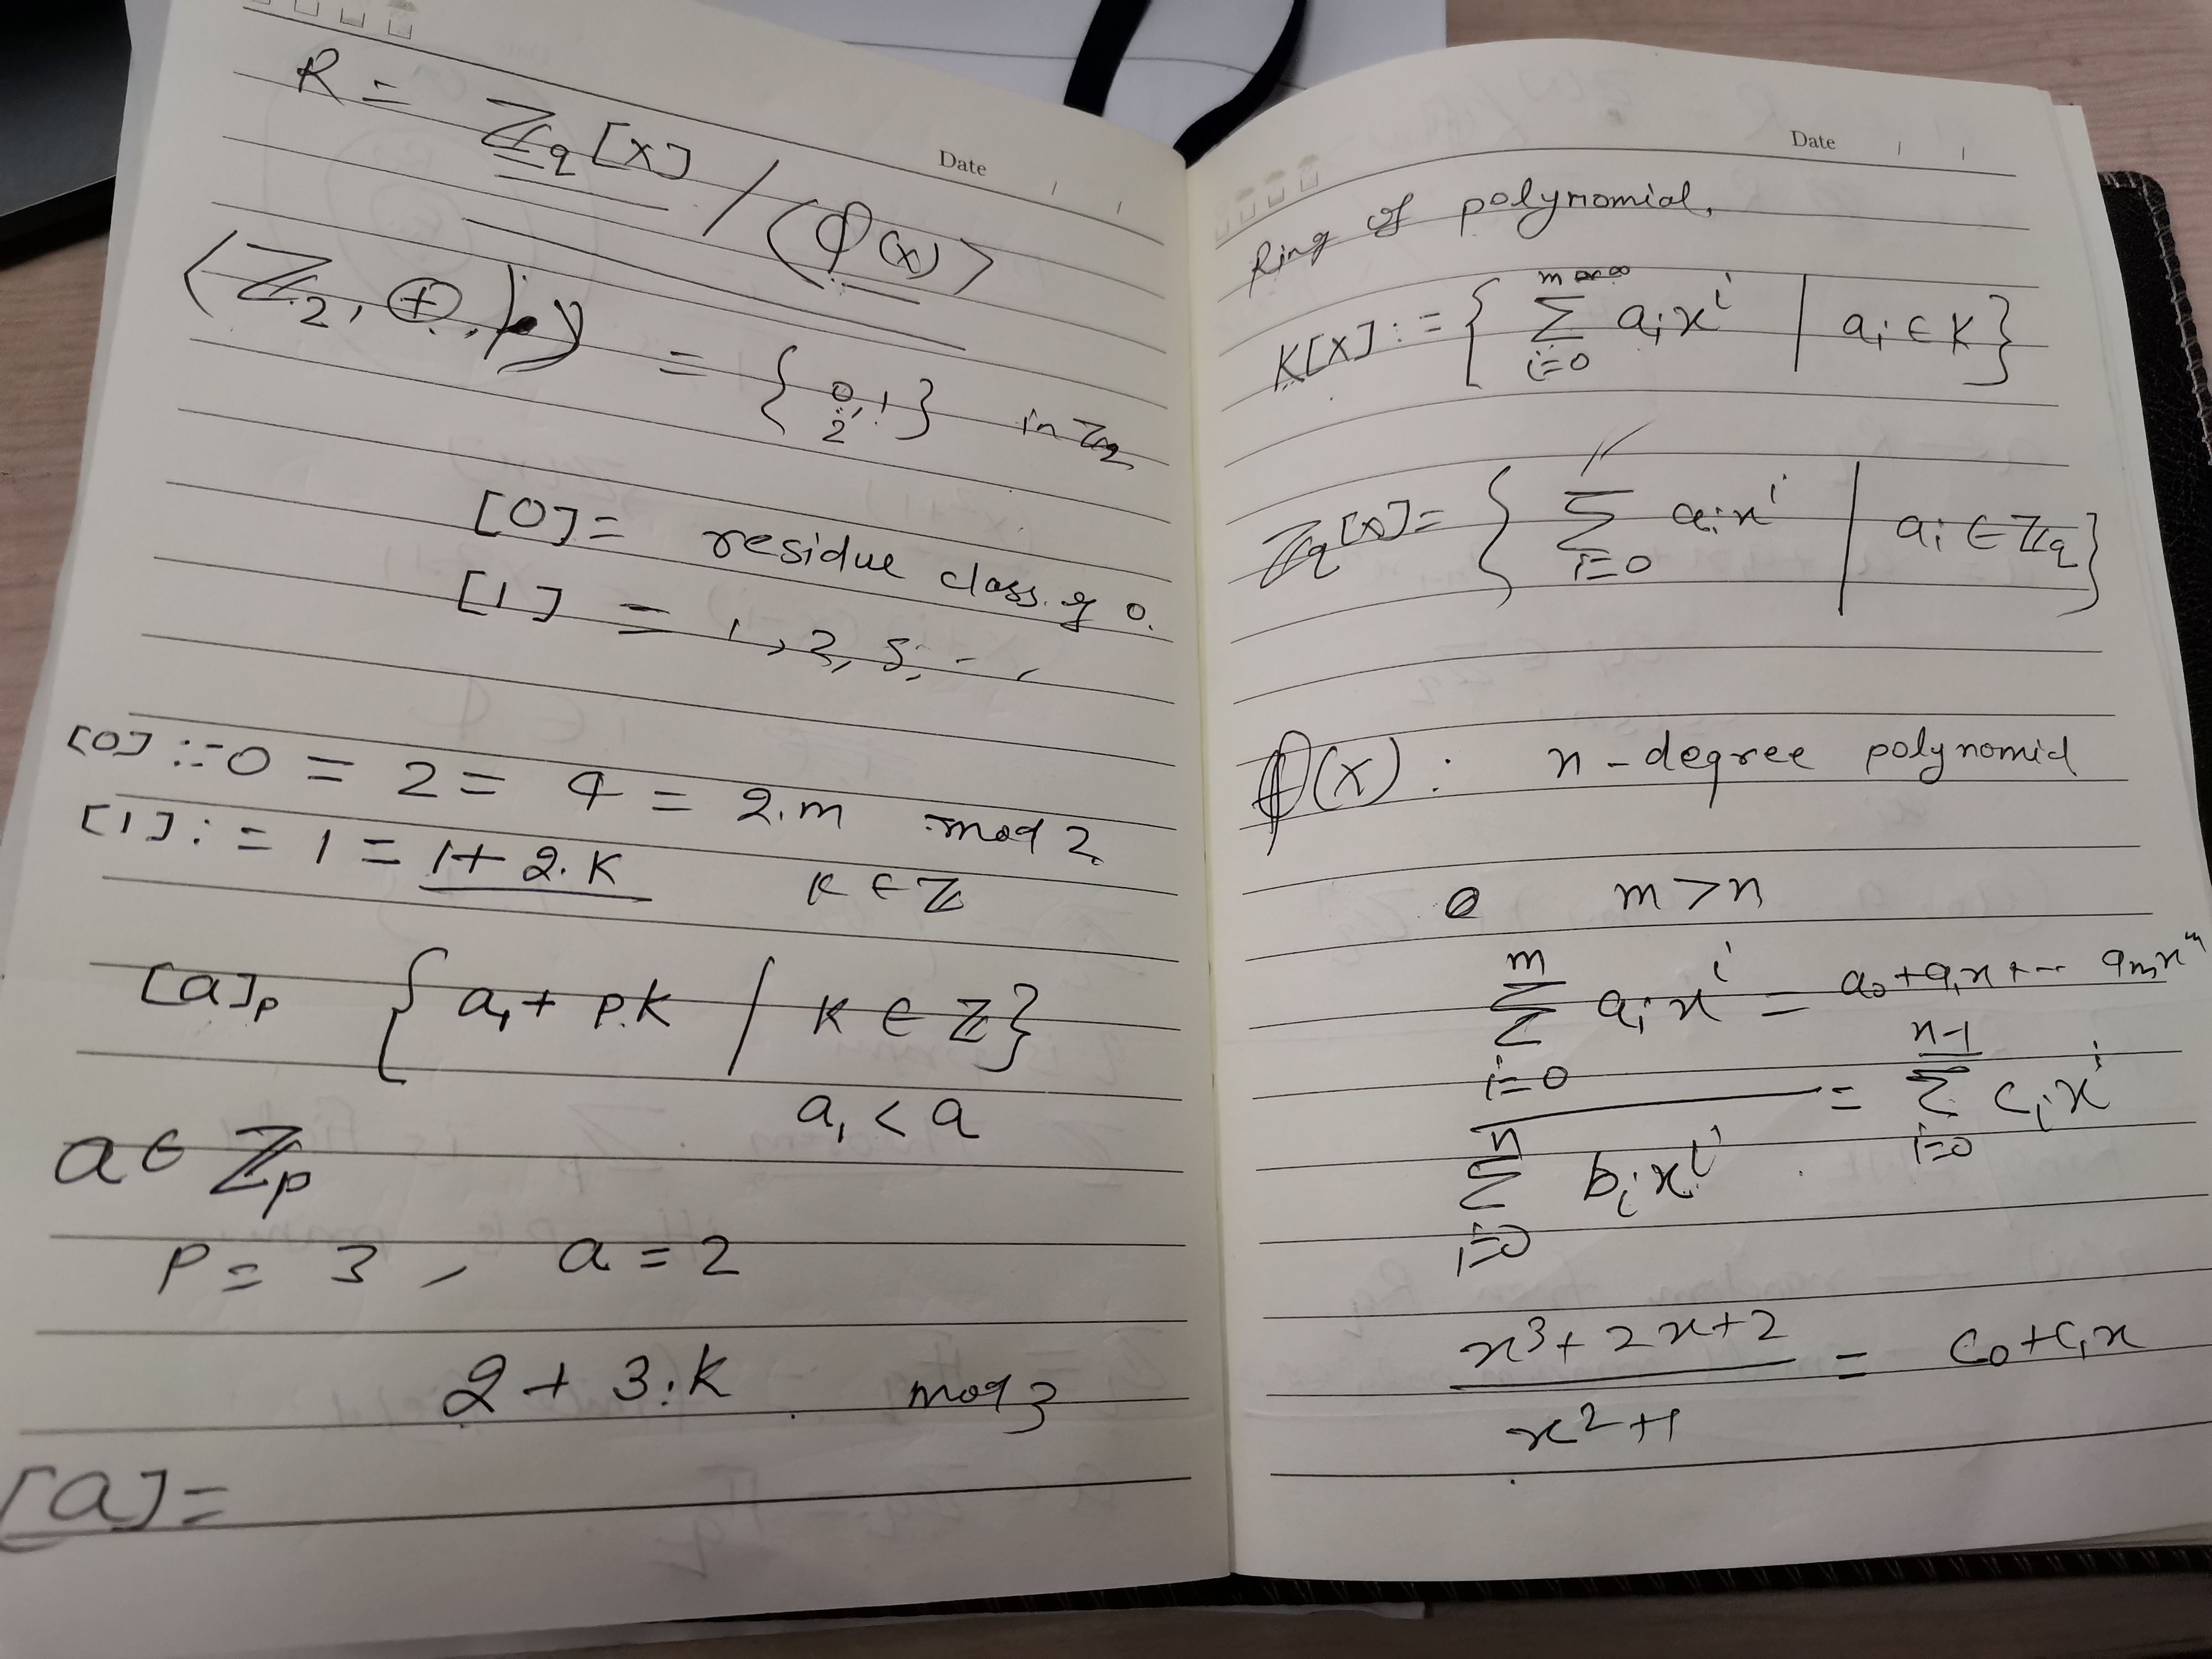 Date
R = ℤq[x] / ⟨φ(x)⟩
(ℤ2, ⊕, ·) = {0, 1} in ℤ2
2
[0] = residue class of 0.
[1] = 1, 3, 5, - -
[0] := 0 = 2 = 4 = 2.m mod 2
[1] := 1 = 1 + 2.k k ∈ ℤ
[a]p { a1 + p.k / k ∈ ℤ}
a1 < a
a ∈ ℤp
P = 3, a = 2
2 + 3.k mod 3
[a] =
Date
Ring of polynomial,
K[x] := { ∑ i=0 aixⁱ | ai ∈ K }
ℤq[x] = { ∑ i=0 aixⁱ | ai ∈ ℤq }
φ(x) : n-degree polynomial
m > n
m ∑ i=0 aixⁱ = a0 + a1x + -- amxᵐ
n ∑ i=0 bixⁱ = n-1 ∑ i=0 cixⁱ
x³ + 2x + 2 = c0 + c1x
x² + 1